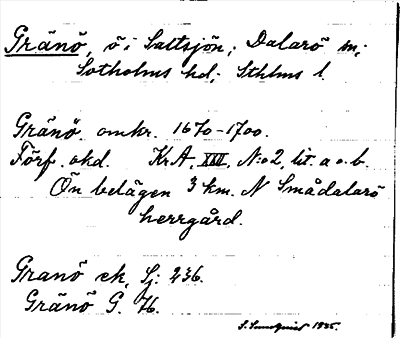 Gränö, ö i Saltsjön; Dalarö sn;
Sotholms hd; Sthlms l.
Gränö. omkr. 1670-1700.
Förf. okd. Kr A, XXI, N:o 2, lit. a o. b.
Ön belägen 3 km. N Smådalarö
herrgård.
Granö ek, Sj: 236.
Gränö G. H.
S. Sundquist 1935.